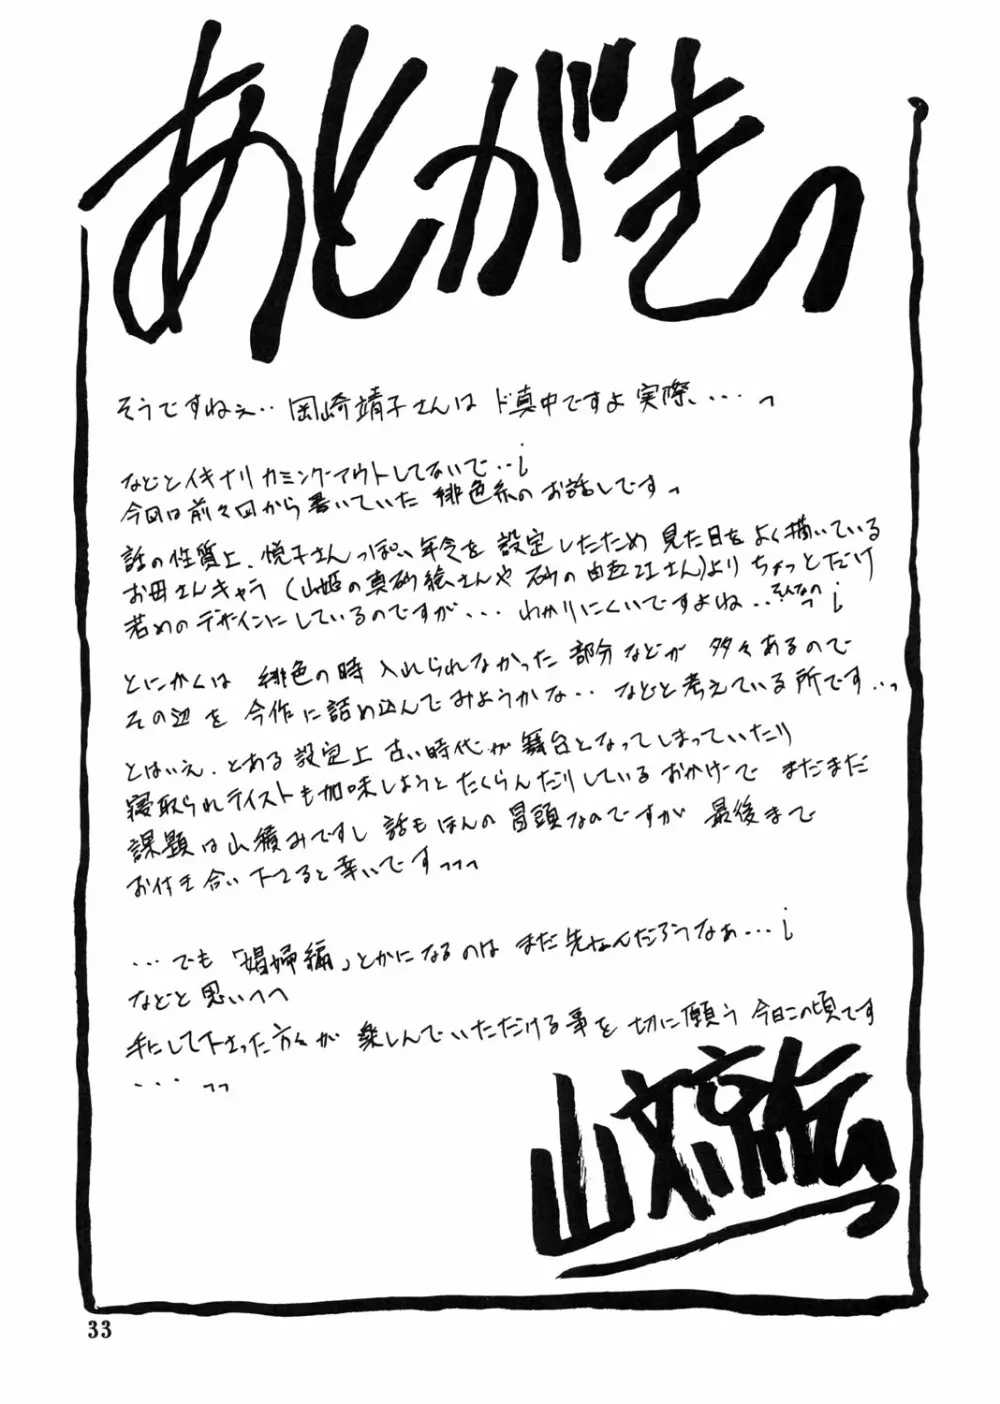 あとがきっ
そうですねぇ‥岡崎靖子さんは ド真中ですよ実際、・・・っ
などとイキナリ カミングアウトしてないで‥¡
今回は前々回から書いていた 緋色系のお話しですっ
話の性質上、悦子さんっぽい年令を設定したため 見た目をよく描いている
お母さんキャラ(山姫の真砂絵さんや 砂の由起江さん)より ちょっとだけ
若めのデザインにしているのですが、・・・ わかりにくいですよね‥そんなの¡
とにかくは 緋色の時 入れられなかった 部分などが 多々あるので
その辺を 今作に詰め込んでみようかな‥ などと考えている所です‥っ
とはいえ、とある設定上 古い時代が舞台となってしまっていたり
寝取られテイストも加味しようと たくらんだりしているおかげで まだまだ
課題は山積みですし 話もほんの冒頭なのですが 最後まで
お付き合い下さると幸いですっっっ
・・・でも「娼婦編」とかになるのは まだ先なんだろうなぁ・・・¡
などと思いつつ
手にして下さった方々が 楽しんでいただける事を切に願う 今日この頃です
・・・っっ
山文京伝
33